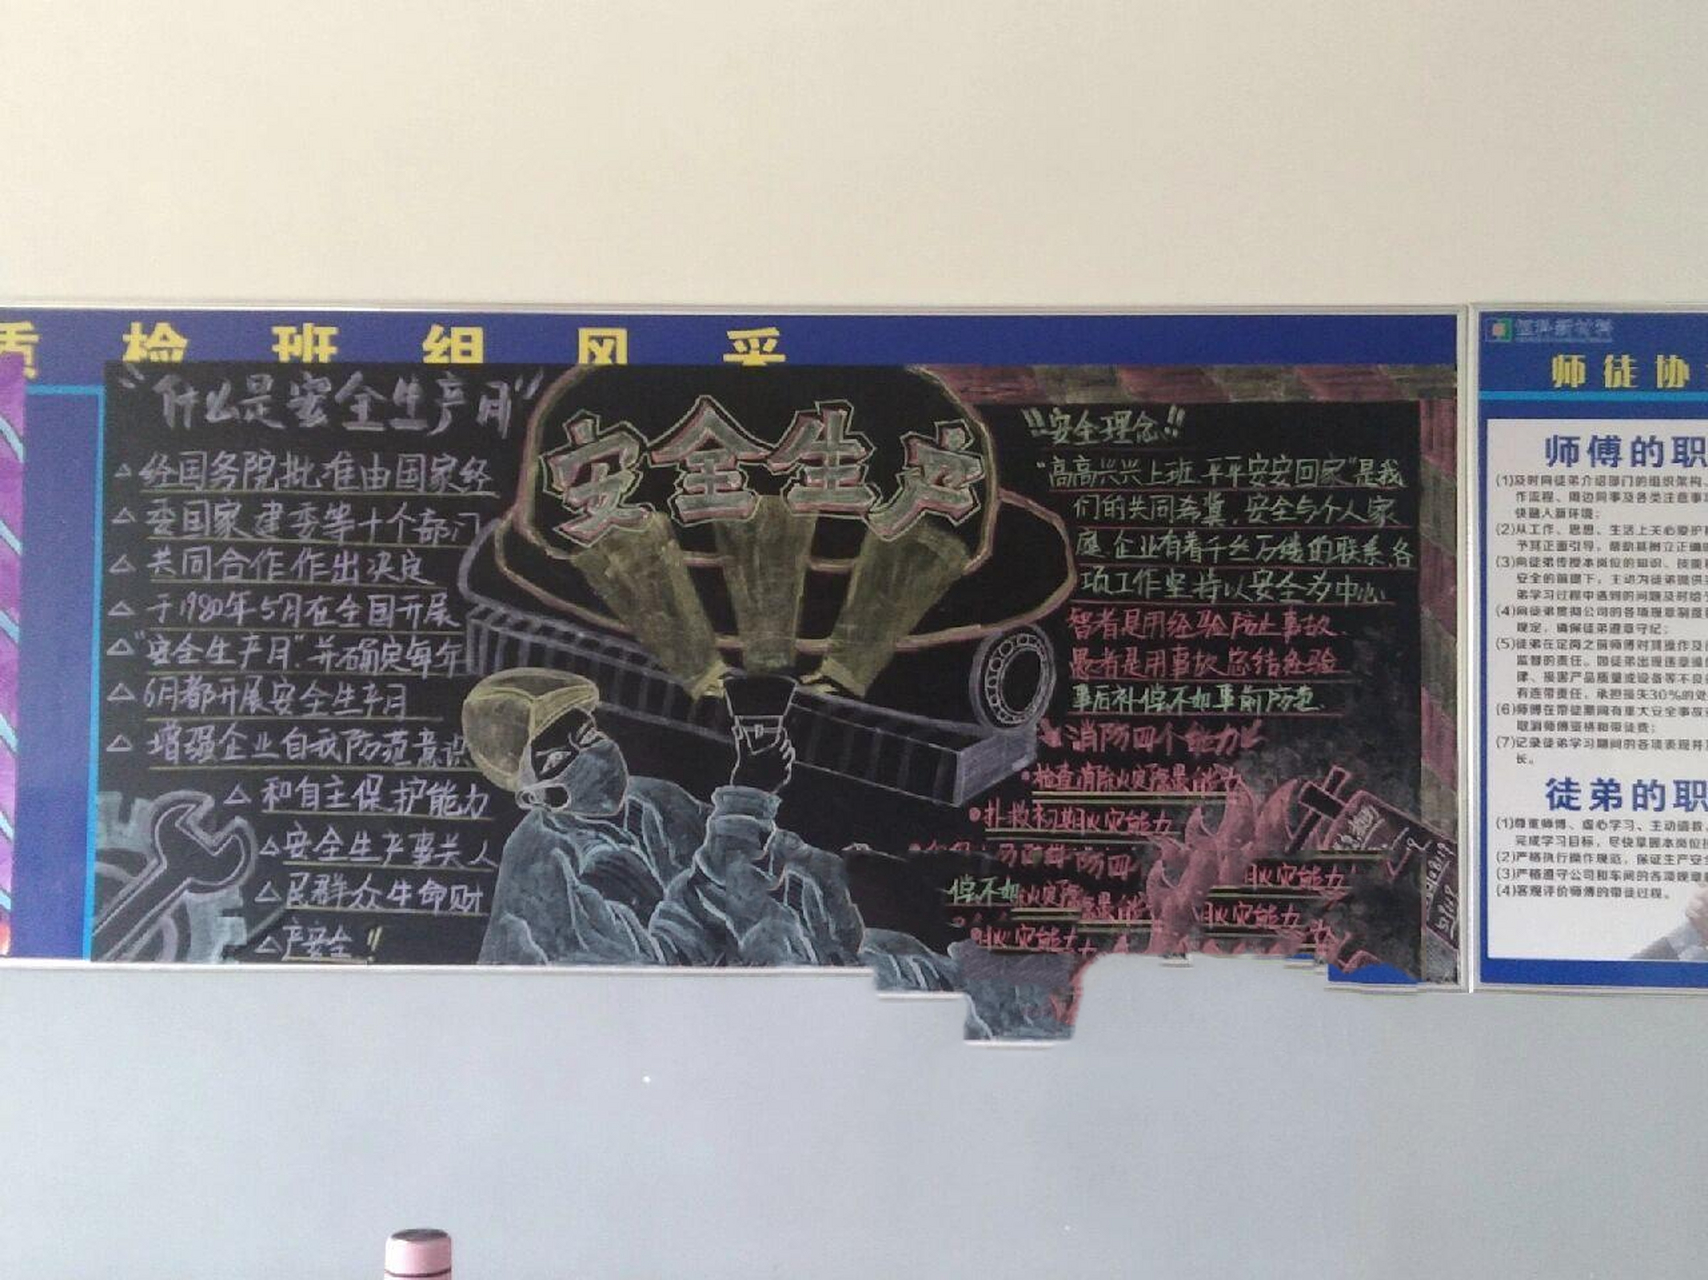 质检班组风采
“什么是安全生产月”
△经国务院批准由国家经
△委国家建委等十个部门
△共同合作作出决定
△于1980年5月在全国开展
△“安全生产月”.并确定每年
△6月都开展安全生产月
△增强企业自我防范意识
△和自主保护能力
△安全生产事关人
△民群众生命财
△产安全!!
安全生产
"安全理念"
“高高兴兴上班.平平安安回家”是我
们的共同希冀.安全与个人家
庭.企业有着千丝万缕的联系.各
项工作坚持以安全为中心
智者是用经验防止事故.
愚者是用事故总结经验
事后补偿不如事前防范.
消防四个能力
•检查消除火灾隐患能力
•扑救初期火灾能力
防四
火灾能力
偿不如
火灾能力
火灾能力
师徒协
师傅的职
(1)及时向徒弟介绍部门的组织架构、
作流程、周边同事及各类注意事
快融入新环境；
(2)从工作、思想、生活上关心爱护
予其正面引导，帮助其树立正确
(3)向徒弟传授本岗位的知识、技能
安全的前提下，主动为徒弟提供
弟学习过程中遇到的问题及时给
(4)向徒弟贯彻公司的各项规章制度
规定，确保徒弟遵章守纪；
(5)徒弟在定岗之前师傅对其操作及
监督的责任。如徒弟出现违章操
律、损害产品质量或设备等不良
有连带责任，承担损失30%的
(6)师傅在带徒期间有重大安全事故
取消师傅资格和带徒费；
(7)记录徒弟学习期间的各项表现并
长。
徒弟的职
(1)尊重师傅、虚心学习、主动请教，
完成学习目标，尽快掌握本岗位
(2)严格执行操作规范，保证生产安
(3)严格遵守公司和车间的各项规章
(4)客观评价师傅的带徒过程。